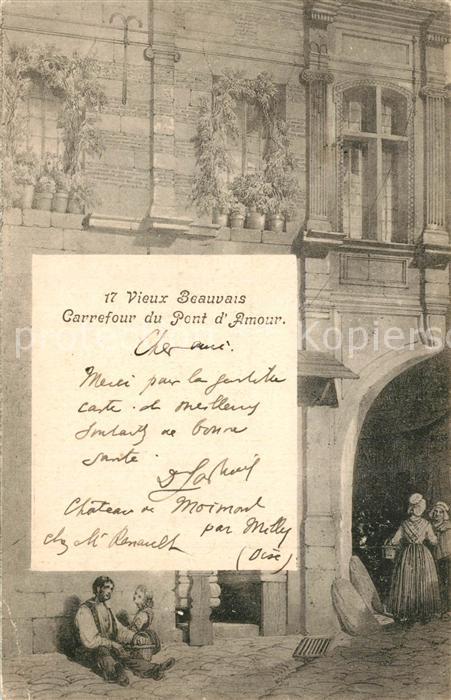 17 Vieux Beauvais
Carrefour du Pont d'Amour.
Cher ami.
Merci pour la gentille
carte. de meilleurs
souhaits de bonne
santé.
Château de Moimont
par Milly
chez Mr Renault
(Oise)